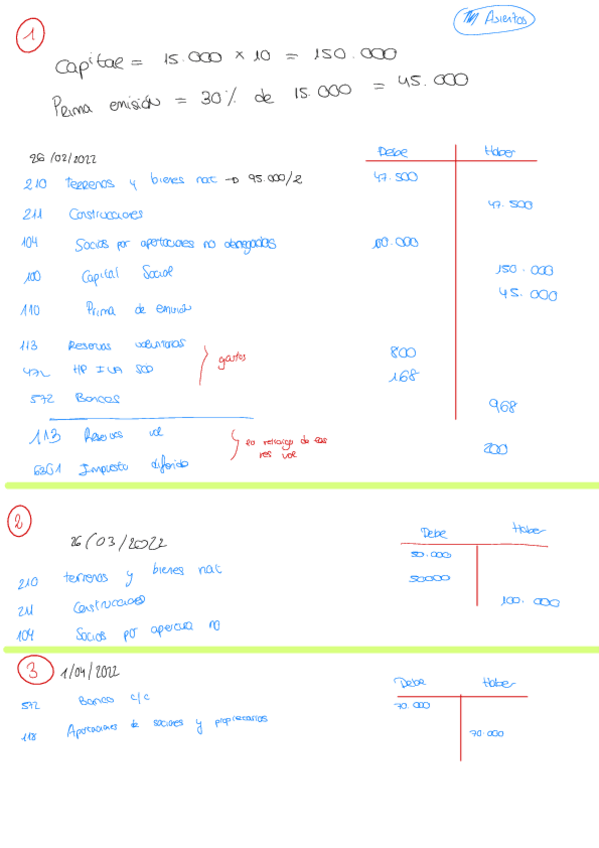 Asientos
1
Capital = 15.000 x 10 = 150.000
Prima emisión = 30% de 15.000 = 45.000
26/02/2022 Debe Haber
210 Terrenos y bienes nat → 95.000/2 47.500
211 Construcciones 47.500
104 Socios por aportaciones no
100 Capital Social 150.000
110 Prima de emisión 45.000
113 Reservas voluntarias 800
472 HP IVA SOP gastos 168
572 Bancos 968
113 Reservas vol 200
6301 Impuesto diferido res vol
2
26/03/2022 Debe Haber
210 terrenos y bienes nat 50.000
211 Construcciones 50000
104 Socios por no 100.000
3 1/04/2022 Debe Haber
572 Banco c/c 70.000
118 Aportaciones de socios y propietarios 70.000